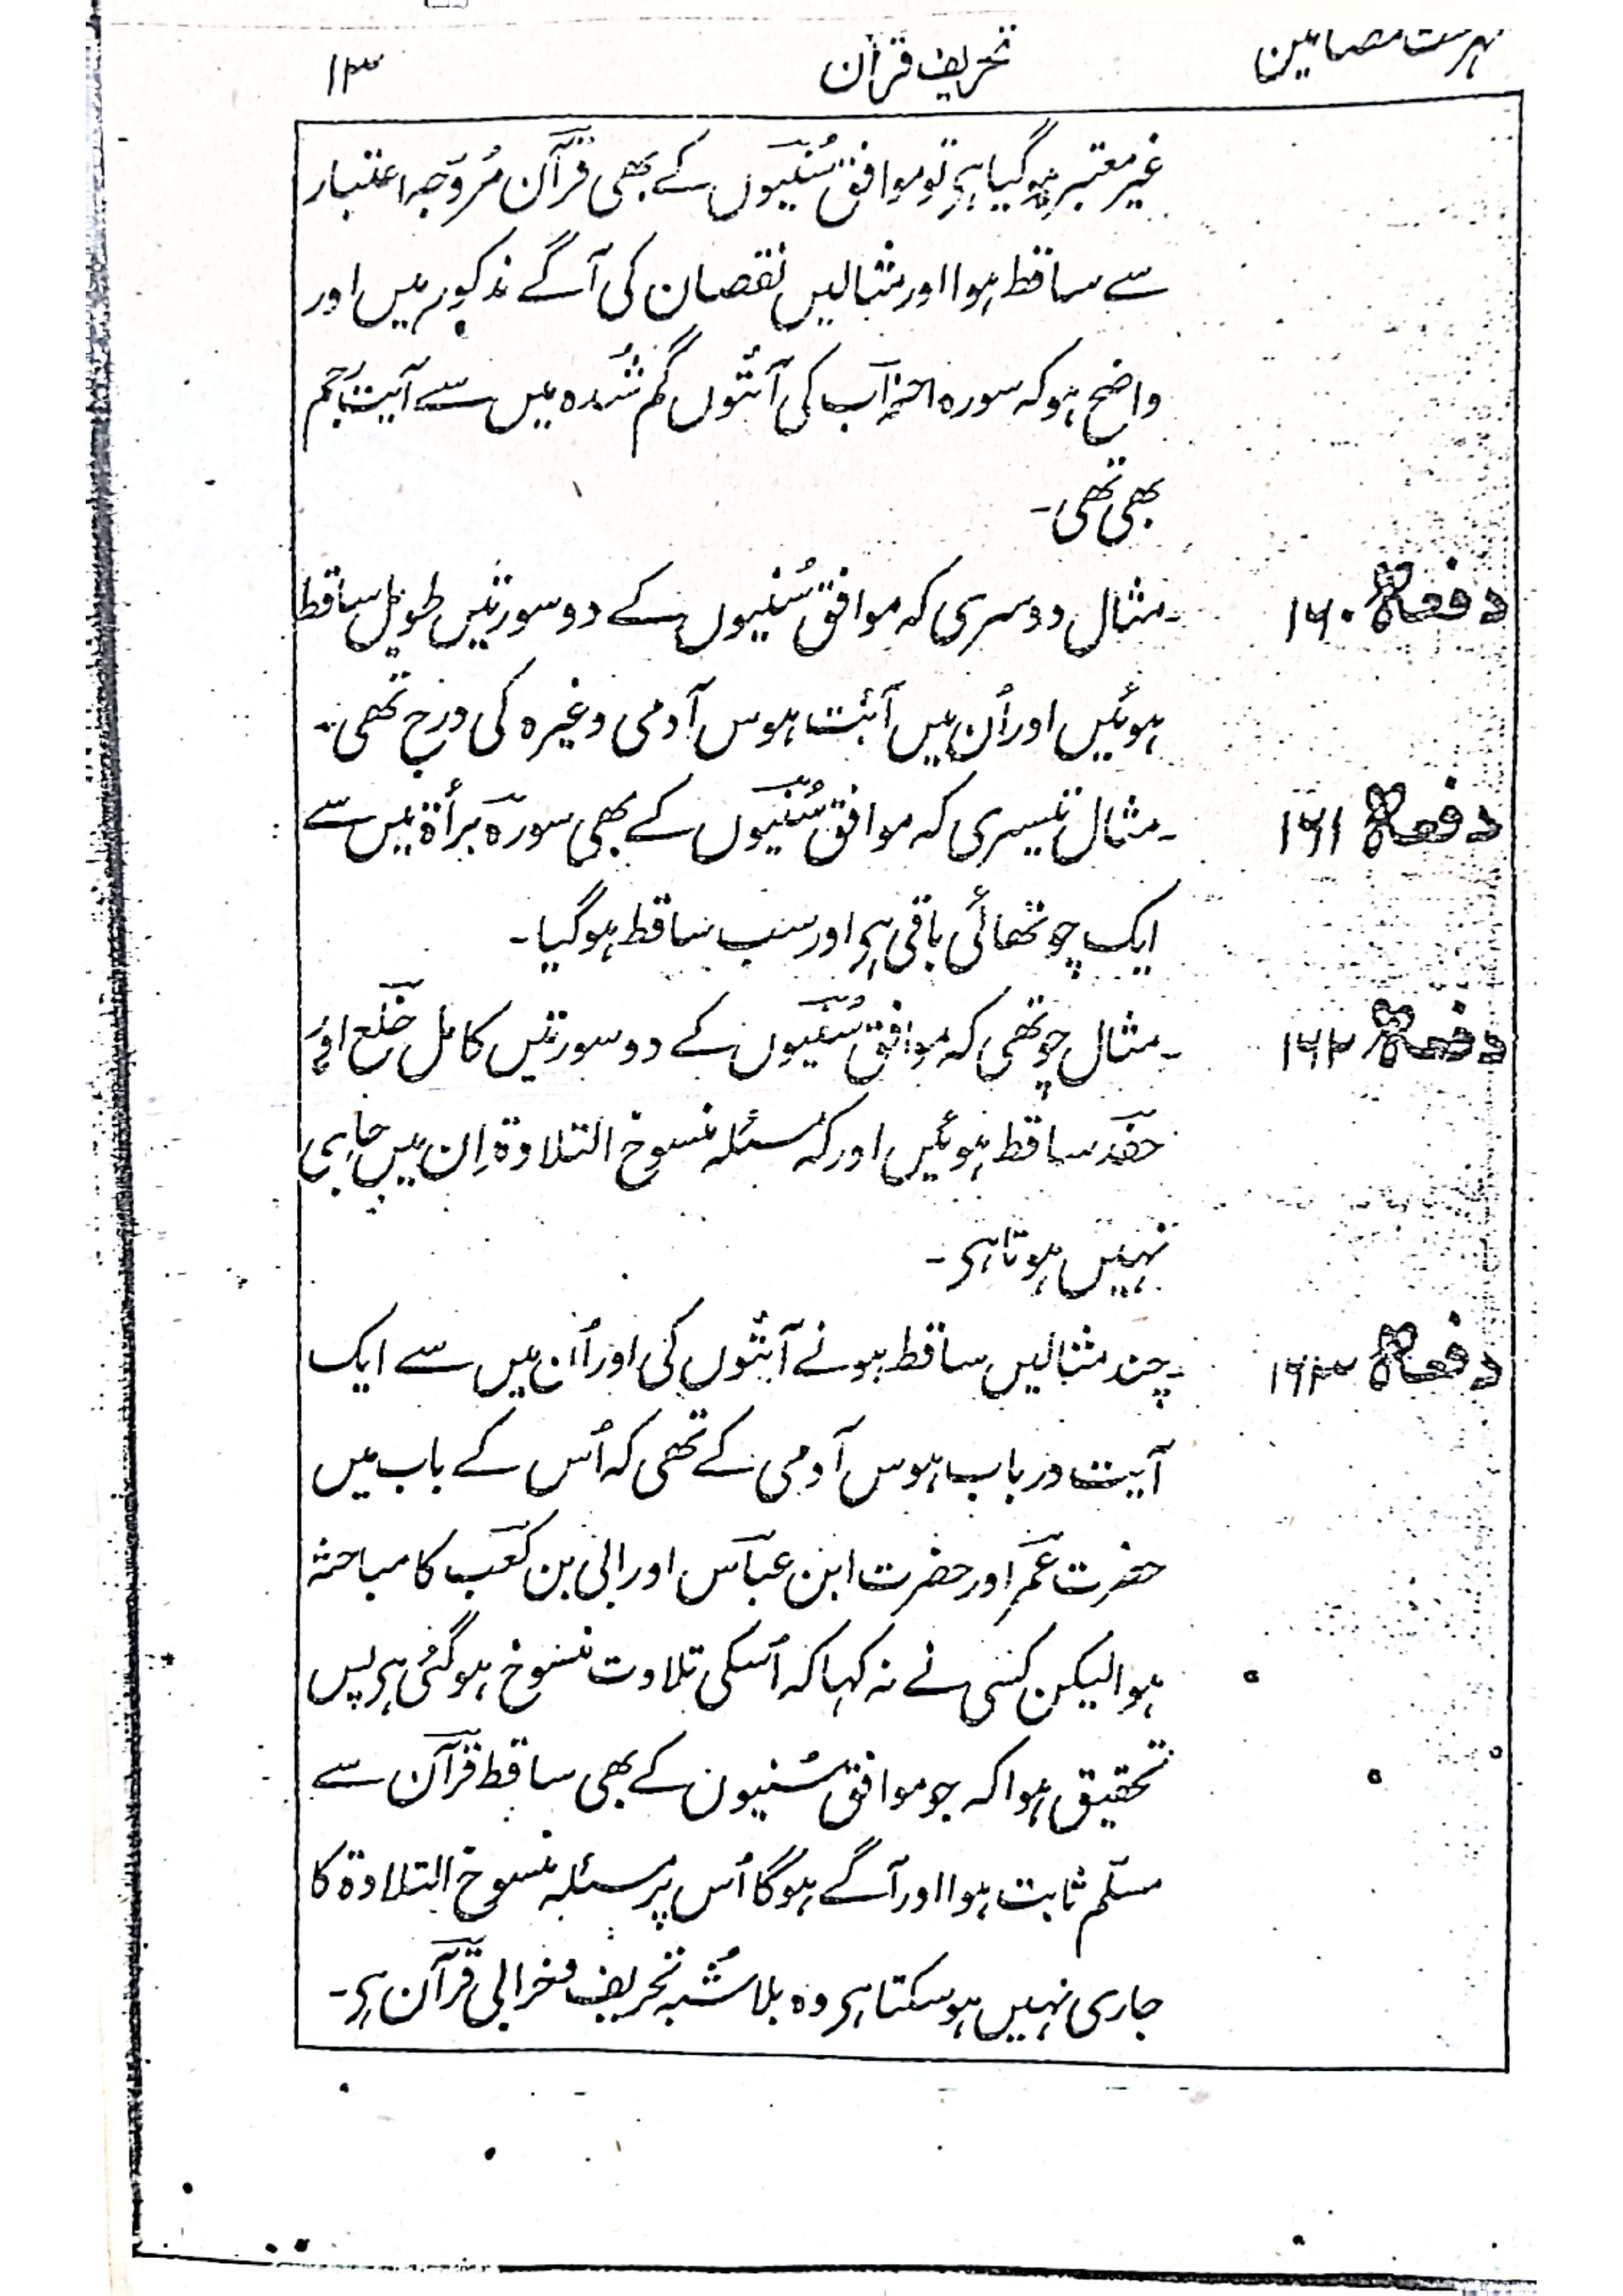 فہرست مضامین تحریف قرآن ۱۳
غیر معتبر ہو گیا ہی تو موافق سُنّیوں کے بھی قرآن مُروّجہ اعتبار
سے ساقط ہوا اور مثالیں نقصان کی آگے مذکور ہیں اور
واضح ہو کہ سورہ احزاب کی آئتوں گم شُدہ میں سے آیت رجم
بھی تھی۔
دفعہ ۱۶۰ ۔ مثال دوسری کہ موافق سُنّیوں کے دو سورتیں طویل ساقط
ہوئیں اور اُن میں آئت ہوس آدمی وغیرہ کی درج تھی۔
دفعہ ۱۶۱ ۔ مثال تیسری کہ موافق سُنّیوں کے بھی سورہ برأة میں سے
ایک چوتھائی باقی ہی اور سب ساقط ہو گیا۔
دفعہ ۱۶۲ ۔ مثال چوتھی کہ موافق سُنّیوں کے دو سورتیں کامل خلع اور
حفد ساقط ہوئیں اور کہ مسئلہ منسوخ التلاوة اِن میں جاری
نہیں ہوتا ہی۔
دفعہ ۱۶۳ ۔ چند مثالیں ساقط ہونے آئتوں کی اور اُن میں سے ایک
آیت در باب ہوس آدمی کے تھی کہ اُس کے باب میں
حضرت عمر اور حضرت ابن عباس اور ابی بن کعب کا مباحثہ
ہوا لیکن کسی نے نہ کہا کہ اُسکی تلاوت منسوخ ہو گئی ہی پس
تحقیق ہوا کہ جو موافق سُنیون کے بھی ساقط قرآن سے
مسلّم ثابت ہوا اور آگے ہو گا اُس پر مسئلہ منسوخ التلاوة کا
جاری نہیں ہو سکتا ہی وہ بلا شُبہ تحریف و خرابی قرآن ہی۔